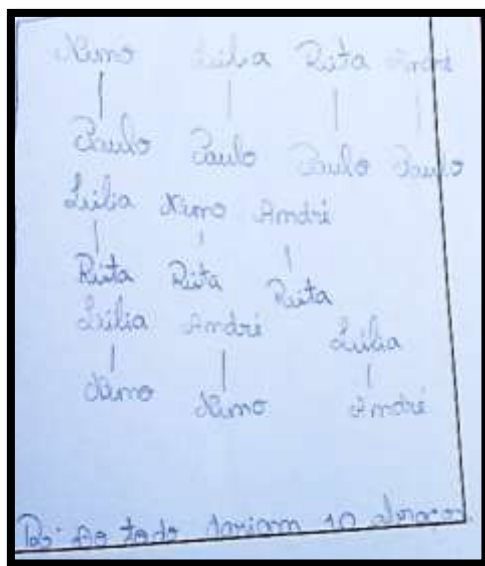 Nuno Lúlia Ruta André
Paulo Paulo Paulo Paulo
Lúlia Nuno André
Ruta Ruta Ruta
Lúlia André Lúlia
Nuno Nuno André
R: Ao todo 10 abraços